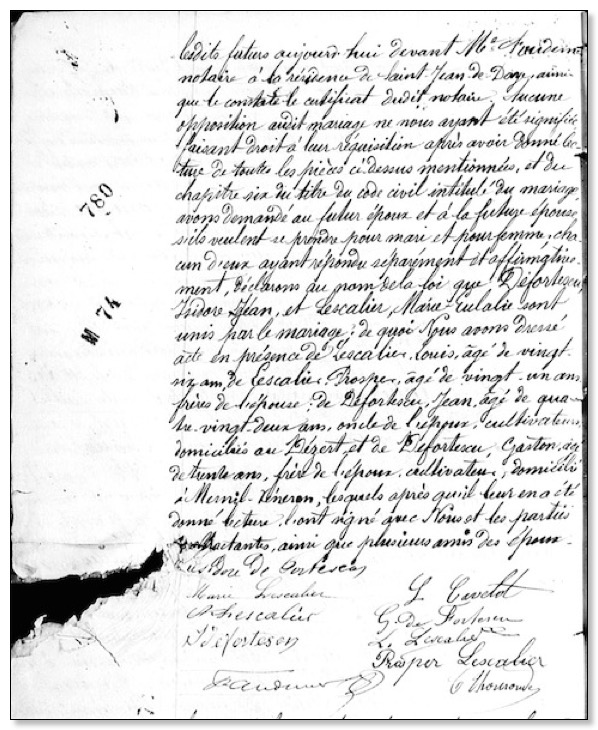 lesdits futurs aujourd'hui devant Me
notaire à la résidence de Saint Jean de Daye, ainsi
que le constate le certificat dudit notaire. Aucune
opposition audit mariage ne nous ayant été signifiée
faisant droit à leur réquisition après avoir donné lec-
ture de toutes les pièces ci-dessus mentionnées, et du
chapitre six du titre du code civil intitulé du mariage
avons demandé au futur époux et à la future épouse,
s'ils veulent se prendre pour mari et pour femme, cha-
cun d'eux ayant répondu séparement et affirmative-
ment, déclarons au nom de la loi que Défortescu,
Isidore Jean, et Lescalier, Marie Eulalie sont
unis par le mariage; de quoi Nous avons dressé
acte en présence de Lescalier, Louis, âgé de vingt-
six ans, de Lescalier, Prosper, âgé de vingt-un ans
frères de l'épouse; de Défortescu, Jean, âgé de qua-
tre-vingt-deux ans, oncle de l'époux, cultivateurs,
domiciliés au Dézert, et de Défortescu, Gaston, âgé
de trente ans, frère de l'époux, cultivateur, domicilié
à Mesnil-Véneron, lesquels après qu'il leur en a été
donné lecture, l'ont signé avec Nous et les parties
contractantes, ainsi que plusieurs amis des époux.
780
M 74
Isidore de Fortescu
Marie Lescalier
A Lescalier
J Défortescu
G. de Fortescu
L. Lescalier
Prosper Lescalier